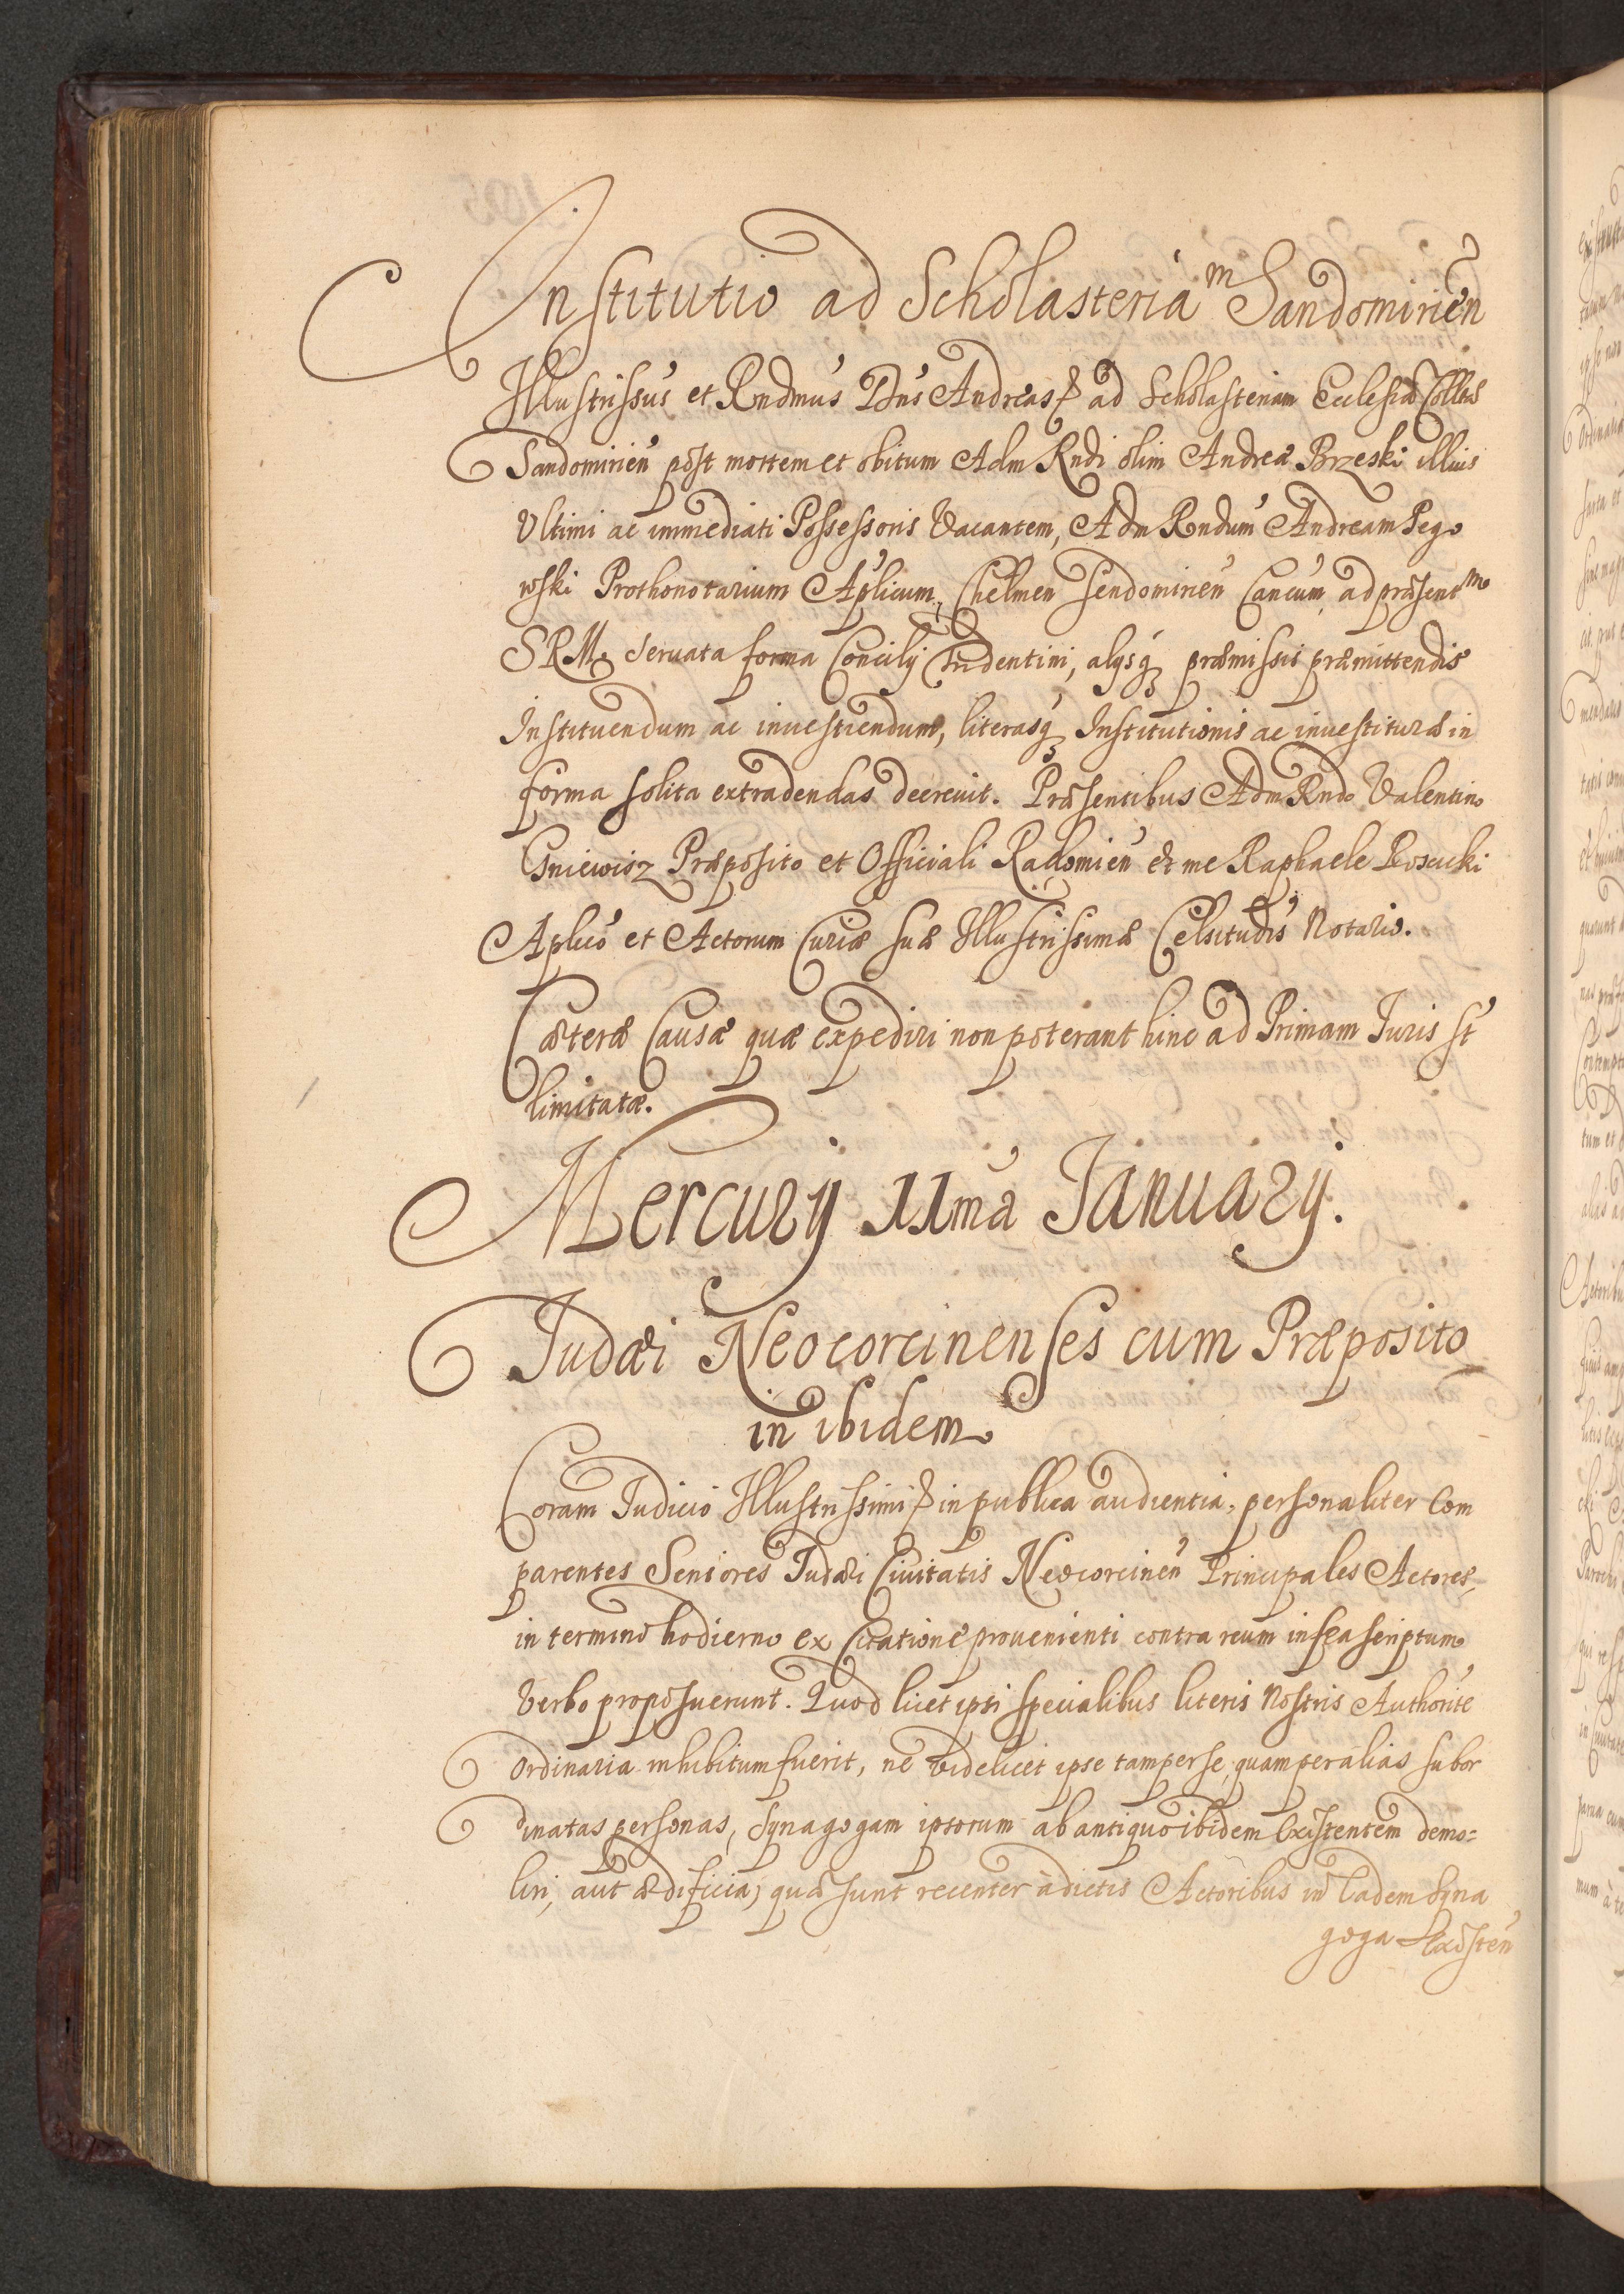 Institutio ad Scholasteriam Sandomirien
Illustrissus et Rndmus Dns Andreas ad Scholasteriam Ecclesiæ Colltæ
Sandomirien post mortem et obitum Adm Rndi olim Andreæ Brzeski illius
Ultimi ac immediati Possessoris Vacantem, Adm Rndum Andream Pego
wski Prothonotarium Aplicum, Chelmen Sendomirien Cancum, ad præsentm
SRM. Servata forma Concilij Tridentini, alysq præmissis præmittendis
Instituendum ac investiendum, literasq Institutionis ac investituræ in
forma solita extradendas decrevit. Præsentibus Adm Rndo Valentino
Gniewisz Præposito et Officiali Radomien et me Raphaele
Aplico et Actorum Curiæ suæ Illustrissimæ Celsitudis Notario.
Cæteræ Causæ quæ expediri non poterant hinc ad Primam Iuris st
limitatæ.
Mercurij 11ma Ianuarij.
Iudæi Neocorcinenses cum Præposito
in ibidem
Coram Iudicio Illustrissimi in publica audientia, personaliter Com
parentes Seniores Iudæi Civitatis Neocorcinen Principales Actores,
in termino hodierno ex Citatione provenienti contra reum infrascriptum
Verbo proposuerunt. Quod licet ipsi specialibus literis Nostris Authorite
Ordinaria inhibitum fuerit, ne videlicet ipse tam per se, quam per alias subor
dinatas personas, Synagogam ipsorum ab antiquo ibidem Existentem demo=
liri, aut ædificia, quæ sunt recenter à dictis Actoribus in Eadem Syna
goga Existen